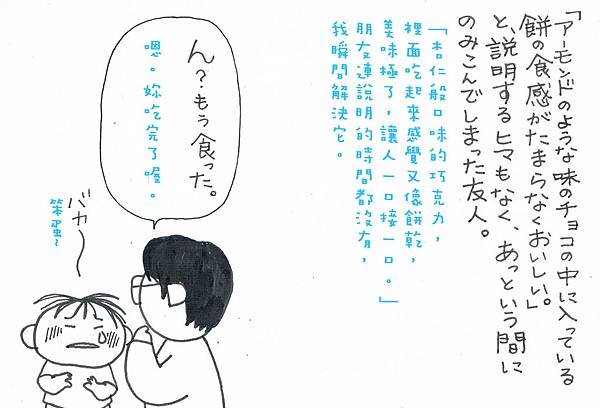 「アーモンドのような味のチョコの中に入っている
餅の食感がたまらなくおいしい。」
と、説明するヒマもなく、あっという間に
のみこんでしまった友人。
「杏仁般口味的巧克力，
裡面吃起來感覺又像餅乾，
美味極了，讓人一口接一口。」
朋友連說明的時間都沒有，
我瞬間解決它。
ん？もう食った。
嗯。妳吃完了喔。
バカ〜
笨蛋~